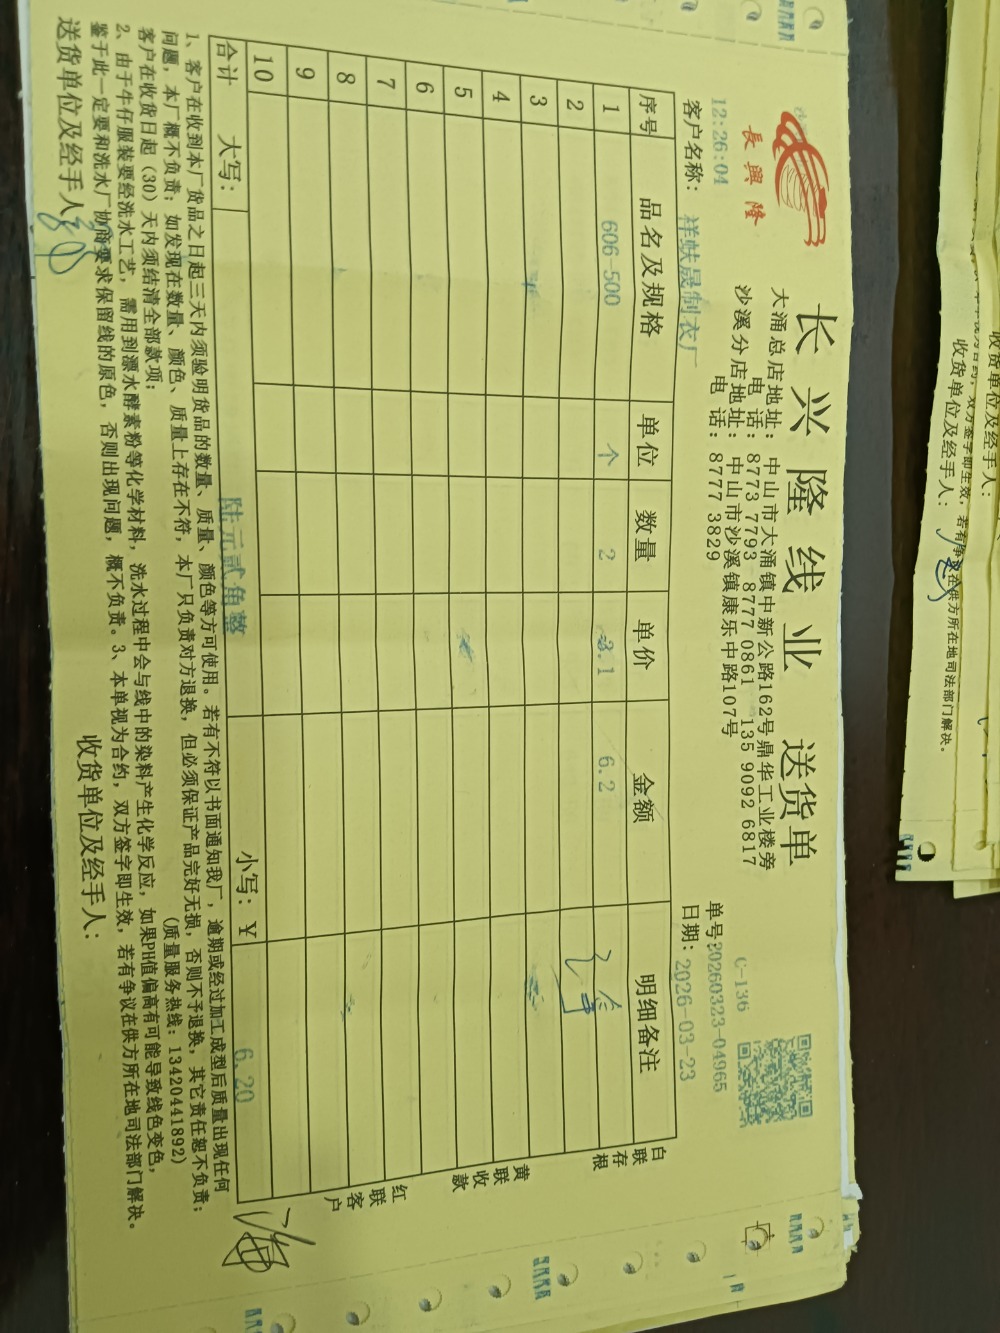 長興隆
长兴隆线业 送货单
大涌总店地址：中山市大涌镇中新公路162号鼎华工业楼旁
电 话：8773 7793 8777 0861 135 9092 6817
沙溪分店地址：中山市沙溪镇康乐中路107号
电 话：8777 3829
C-136
12:26:04
单号:20260323-04965
客户名称： 祥蚨晟制衣厂
日期：2026-03-23
序号 品名及规格 单位 数量 单价 金额 明细备注
1 606-500 个 2 3.1 6.2
2
3
4
5
6
7
8
9
10
合计 大写： 陆元贰角整 小写：￥ 6.20
白联存根
黄联收款
红联客户
1、客户在收到本厂货品之日起三天内须验明货品的数量、质量、颜色等方可使用。若有不符以书面通知我厂，逾期或经过加工成型后质量出现任何
问题，本厂概不负责；如发现在数量、颜色、质量上存在不符，本厂只负责对方退换，但必须保证产品完好无损，否则不予退换，其它责任恕不负责；
客户在收货日起（30）天内须结清全部款项； （质量服务热线：13420441892）
2、由于牛仔服装要经洗水工艺，需用到漂水酵素粉等化学材料，洗水过程中会与线中的染料产生化学反应，如果PH值偏高有可能导致线色变色，
鉴于此一定要和洗水厂协商要求保留线的原色，否则出现问题，概不负责。3、本单视为合约，双方签字即生效，若有争议在供方所在地司法部门解决。
送货单位及经手人
收货单位及经手人：
收货单位及经手人：
双方签字即生效，若有争议在供方所在地司法部门解决。
收货单位及经手人：